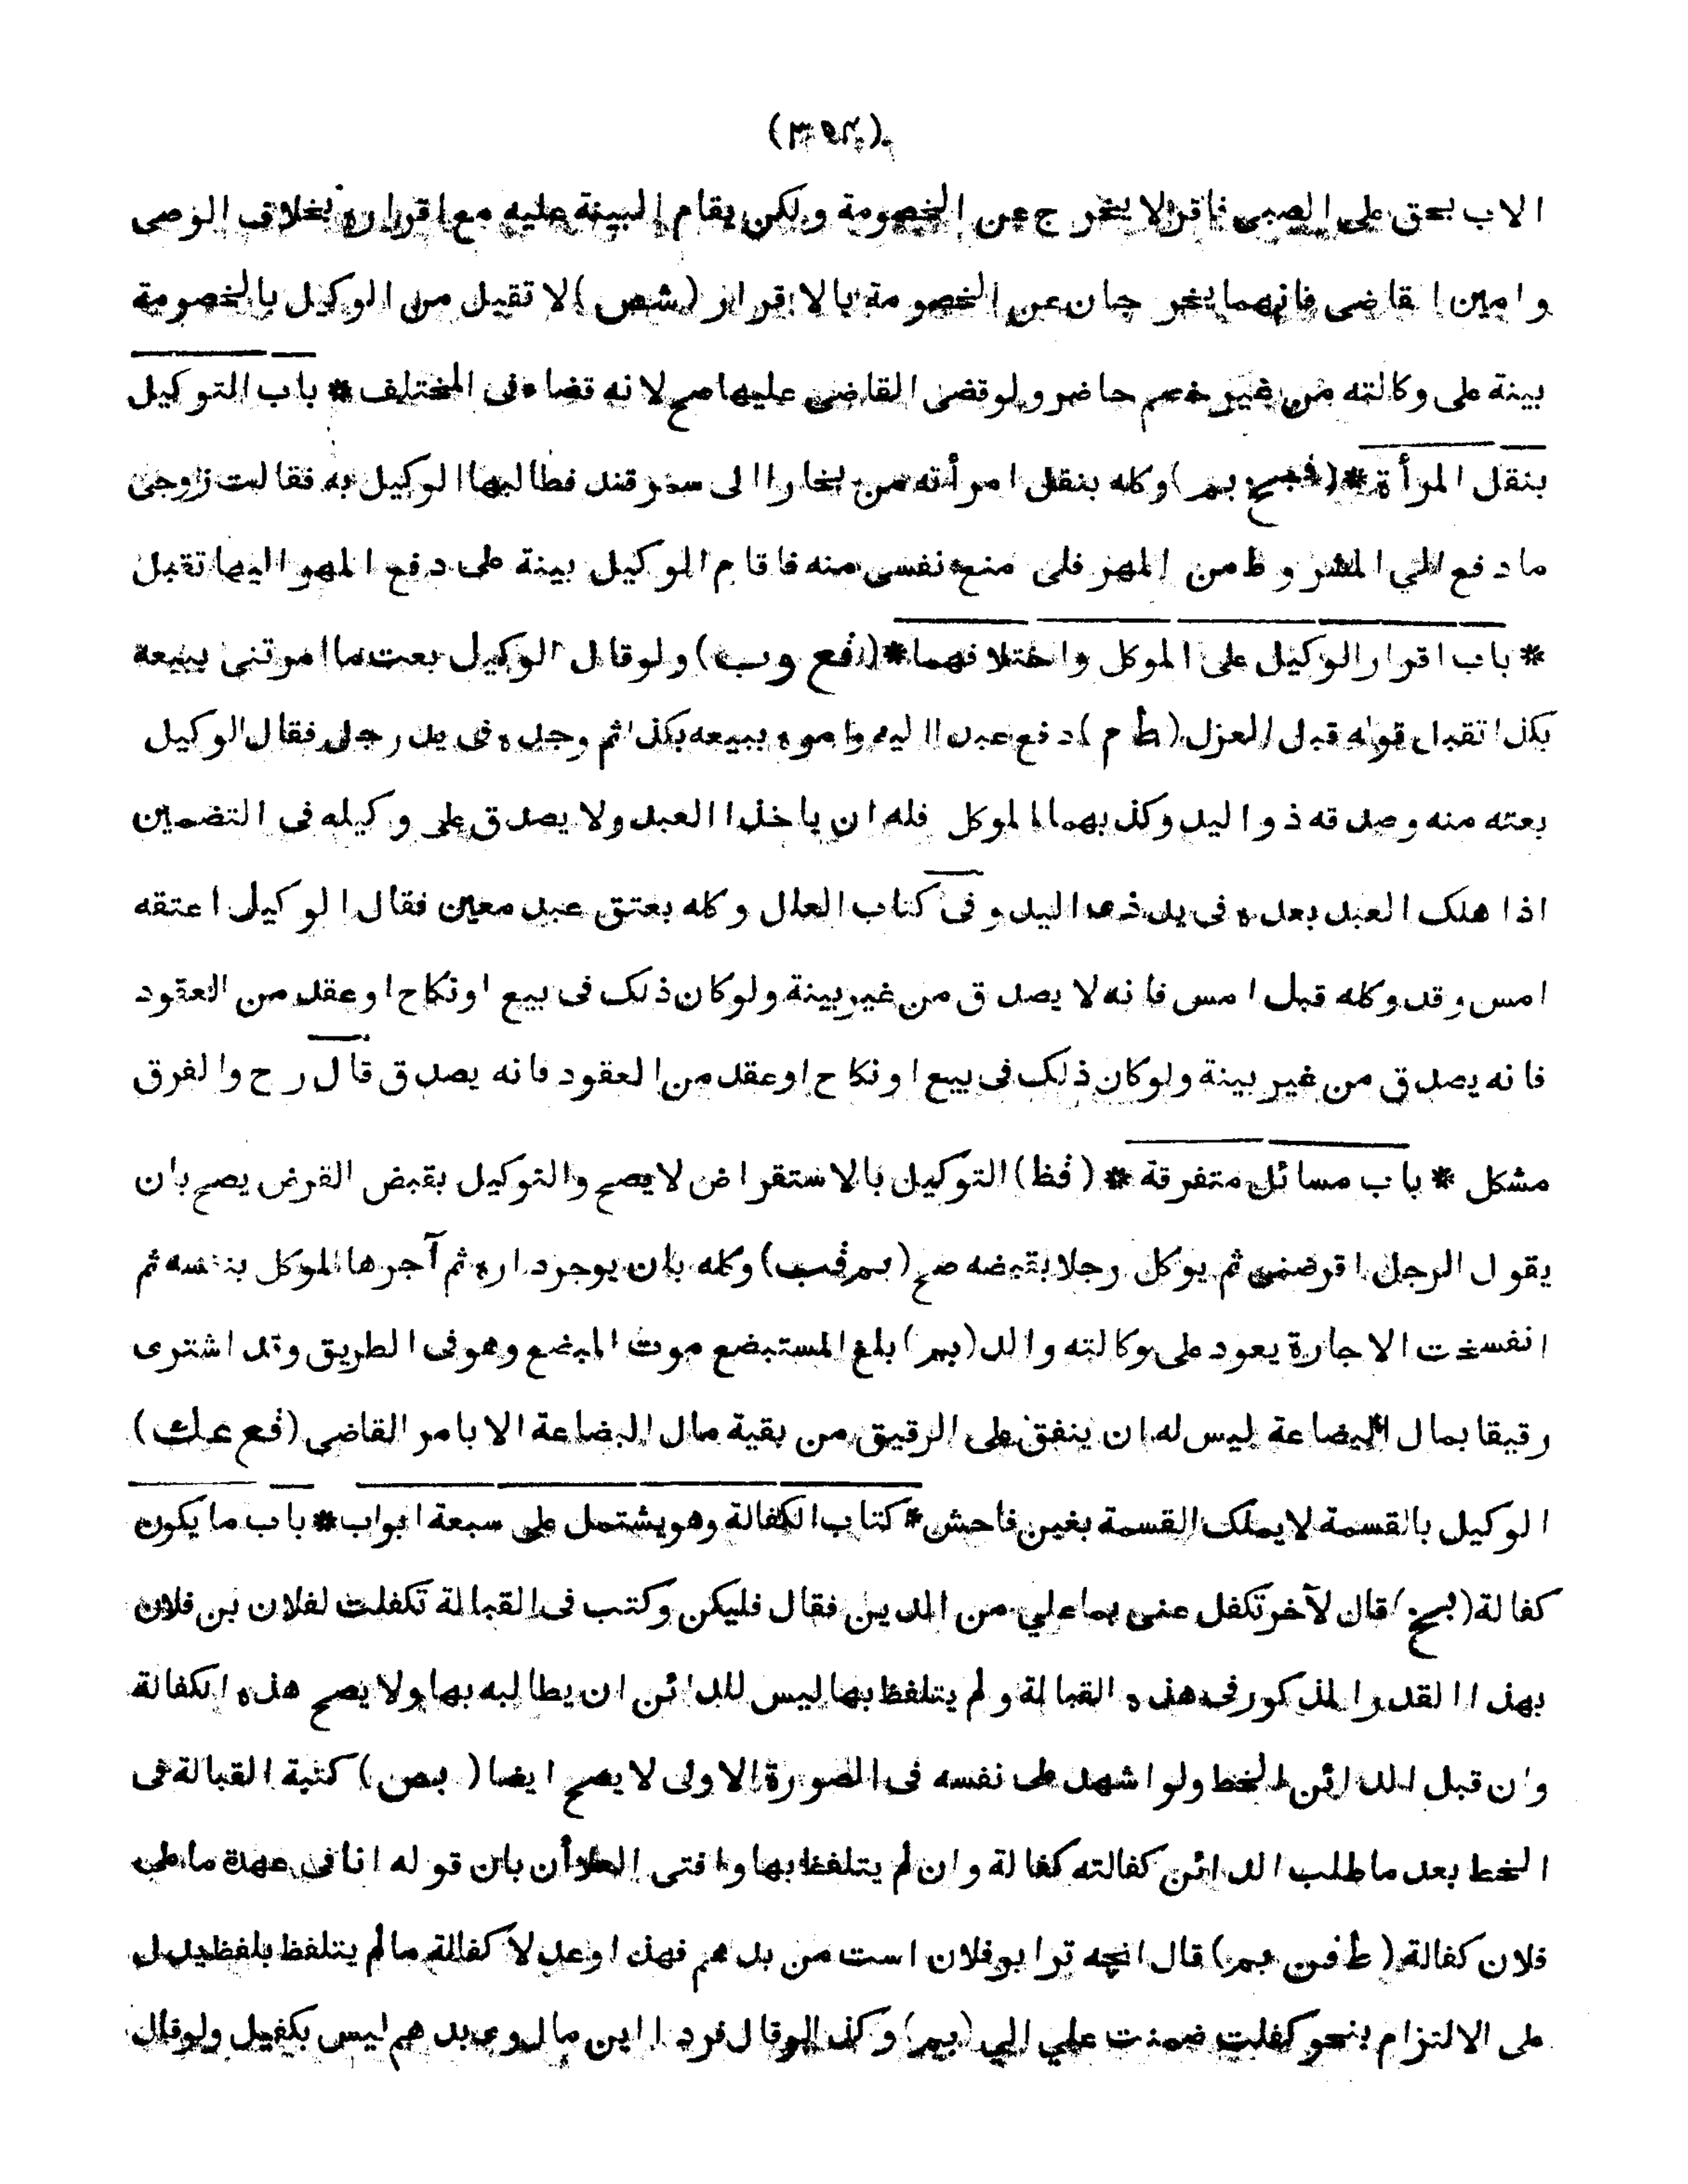 الاب بحق على الصبى فاقر لا يخرج عن الخصومة ولكن يقام البينة عليه مع اقراره بخلاف الوصى
وامين القاضى فانهما يخرجان عن الخصومة بالاقرار (شص) لا تقبل من الوكيل بالخصومة
بينة على وكالته من غير خصم حاضر ولو قضى القاضى عليها صح لانه قضاء فى المختلف * باب التوكيل
بنقل المرأة * (فبخ بم) وكله بنقل امرأته من بخارا الى سمرقند فطالبها الوكيل به فقالت زوجى
ما دفع الي المشروط من المهر فلى منع نفسى منه فاقام الوكيل بينة على دفع المهر اليها تقبل
* باب اقرار الوكيل على الموكل واختلافهما * (فع وب) ولو قال الوكيل بعت ما امرتنى ببيعه
بكذا تقبل قوله قبل العزل (ط م) دفع عبدا اليه وامره ببيعه بكذا ثم وجده فى يد رجل فقال الوكيل
بعته منه وصدقه ذو اليد وكذبهما الموكل فله ان ياخذ العبد ولا يصدق على وكيله فى التضمين
اذا هلك العبد بعده فى يد ذى اليد وفى كتاب العلل وكله بعتق عبد معين فقال الوكيل اعتقه
امس وقد وكله قبل امس فانه لا يصدق من غير بينة ولو كان ذلك فى بيع او نكاح او عقد من العقود
فانه يصدق من غير بينة ولو كان ذلك فى بيع او نكاح او عقد من العقود فانه يصدق قال رح والفرق
مشكل * باب مسائل متفرقة * (فظ) التوكيل بالاستقراض لا يصح والتوكيل بقبض القرض يصح بان
يقول الرجل اقرضنى ثم يوكل رجلا بقبضه صح (بم فب) وكله بان يوجر داره ثم آجرها الموكل بنفسه ثم
انفسخت الاجارة يعود على وكالته والد (بم) بلغ المستبضع موت المبضع وهو فى الطريق وقد اشترى
رقيقا بمال البضاعة ليس له ان ينفق على الرقيق من بقية مال البضاعة الا بامر القاضى (فع عك)
الوكيل بالقسمة لا يملك القسمة بغبن فاحش * كتاب الكفالة وهو يشتمل على سبعة ابواب * باب ما يكون
كفالة (بخ) قال لآخر تكفل عنى بما علي من الدين فقال فليكن وكتب فى القبالة تكفلت لفلان بن فلان
بهذا القدر المذكور فى هذه القبالة ولم يتلفظ بها ليس للدائن ان يطالبه بها ولا يصح هذه الكفالة
وان قبل الدائن الخط ولو اشهد على نفسه فى الصورة الاولى لا يصح ايضا (بص) كتبة القبالة فى
الخط بعد ما طلب الدائن كفالته كفالة وان لم يتلفظ بها وافتى العلاأن بان قوله انا فى عهدة ما على
فلان كفالة (ط فن بم) قال انچه ترا بر فلان است من بدهم فهذا وعد لا كفالة ما لم يتلفظ بلفظ يدل
على الالتزام بنحو كفلت ضمنت علي الي (بم) وكذا لو قال فردا اين مال وى بدهم ليس بكفيل ولو قال